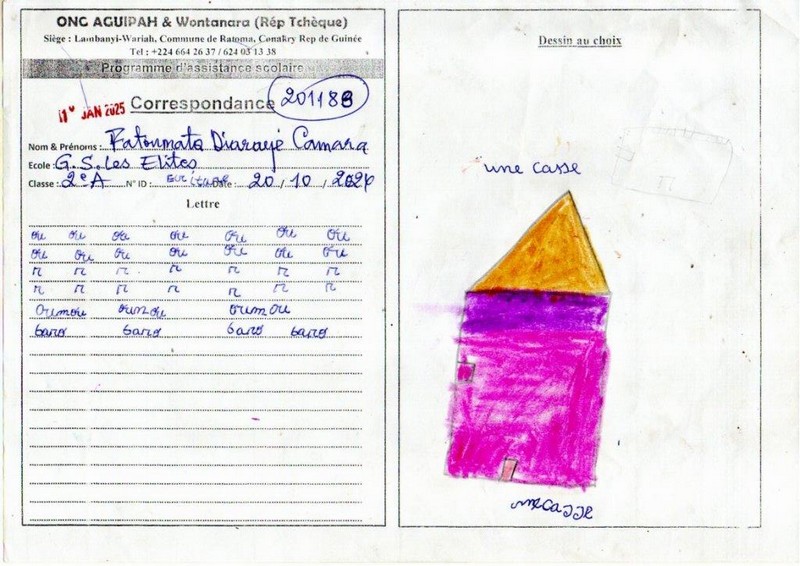 ONG AGUIPAH & Wontanara (Rép Tchèque)
Siège : Lambanyi-Wariah, Commune de Ratoma, Conakry Rep de Guinée
Tel : +224 664 26 37 / 624 03 13 38
Programme d'assistance scolaire
JAN 2025 Correspondance 201183
Nom & Prénoms : Fatoumata Diaraye Camara
Ecole : G.S. Les Elites
Classe : 2e A N° ID : écriture Date : 20 / 10 / 2024
Lettre
ou ou ou ou ou ou ou
ou ou ou ou ou ou ou
r r r r r r r
r r r r r r r
oumou oumou oumou
baro baro baro baro
Dessin au choix
une casse
une casse